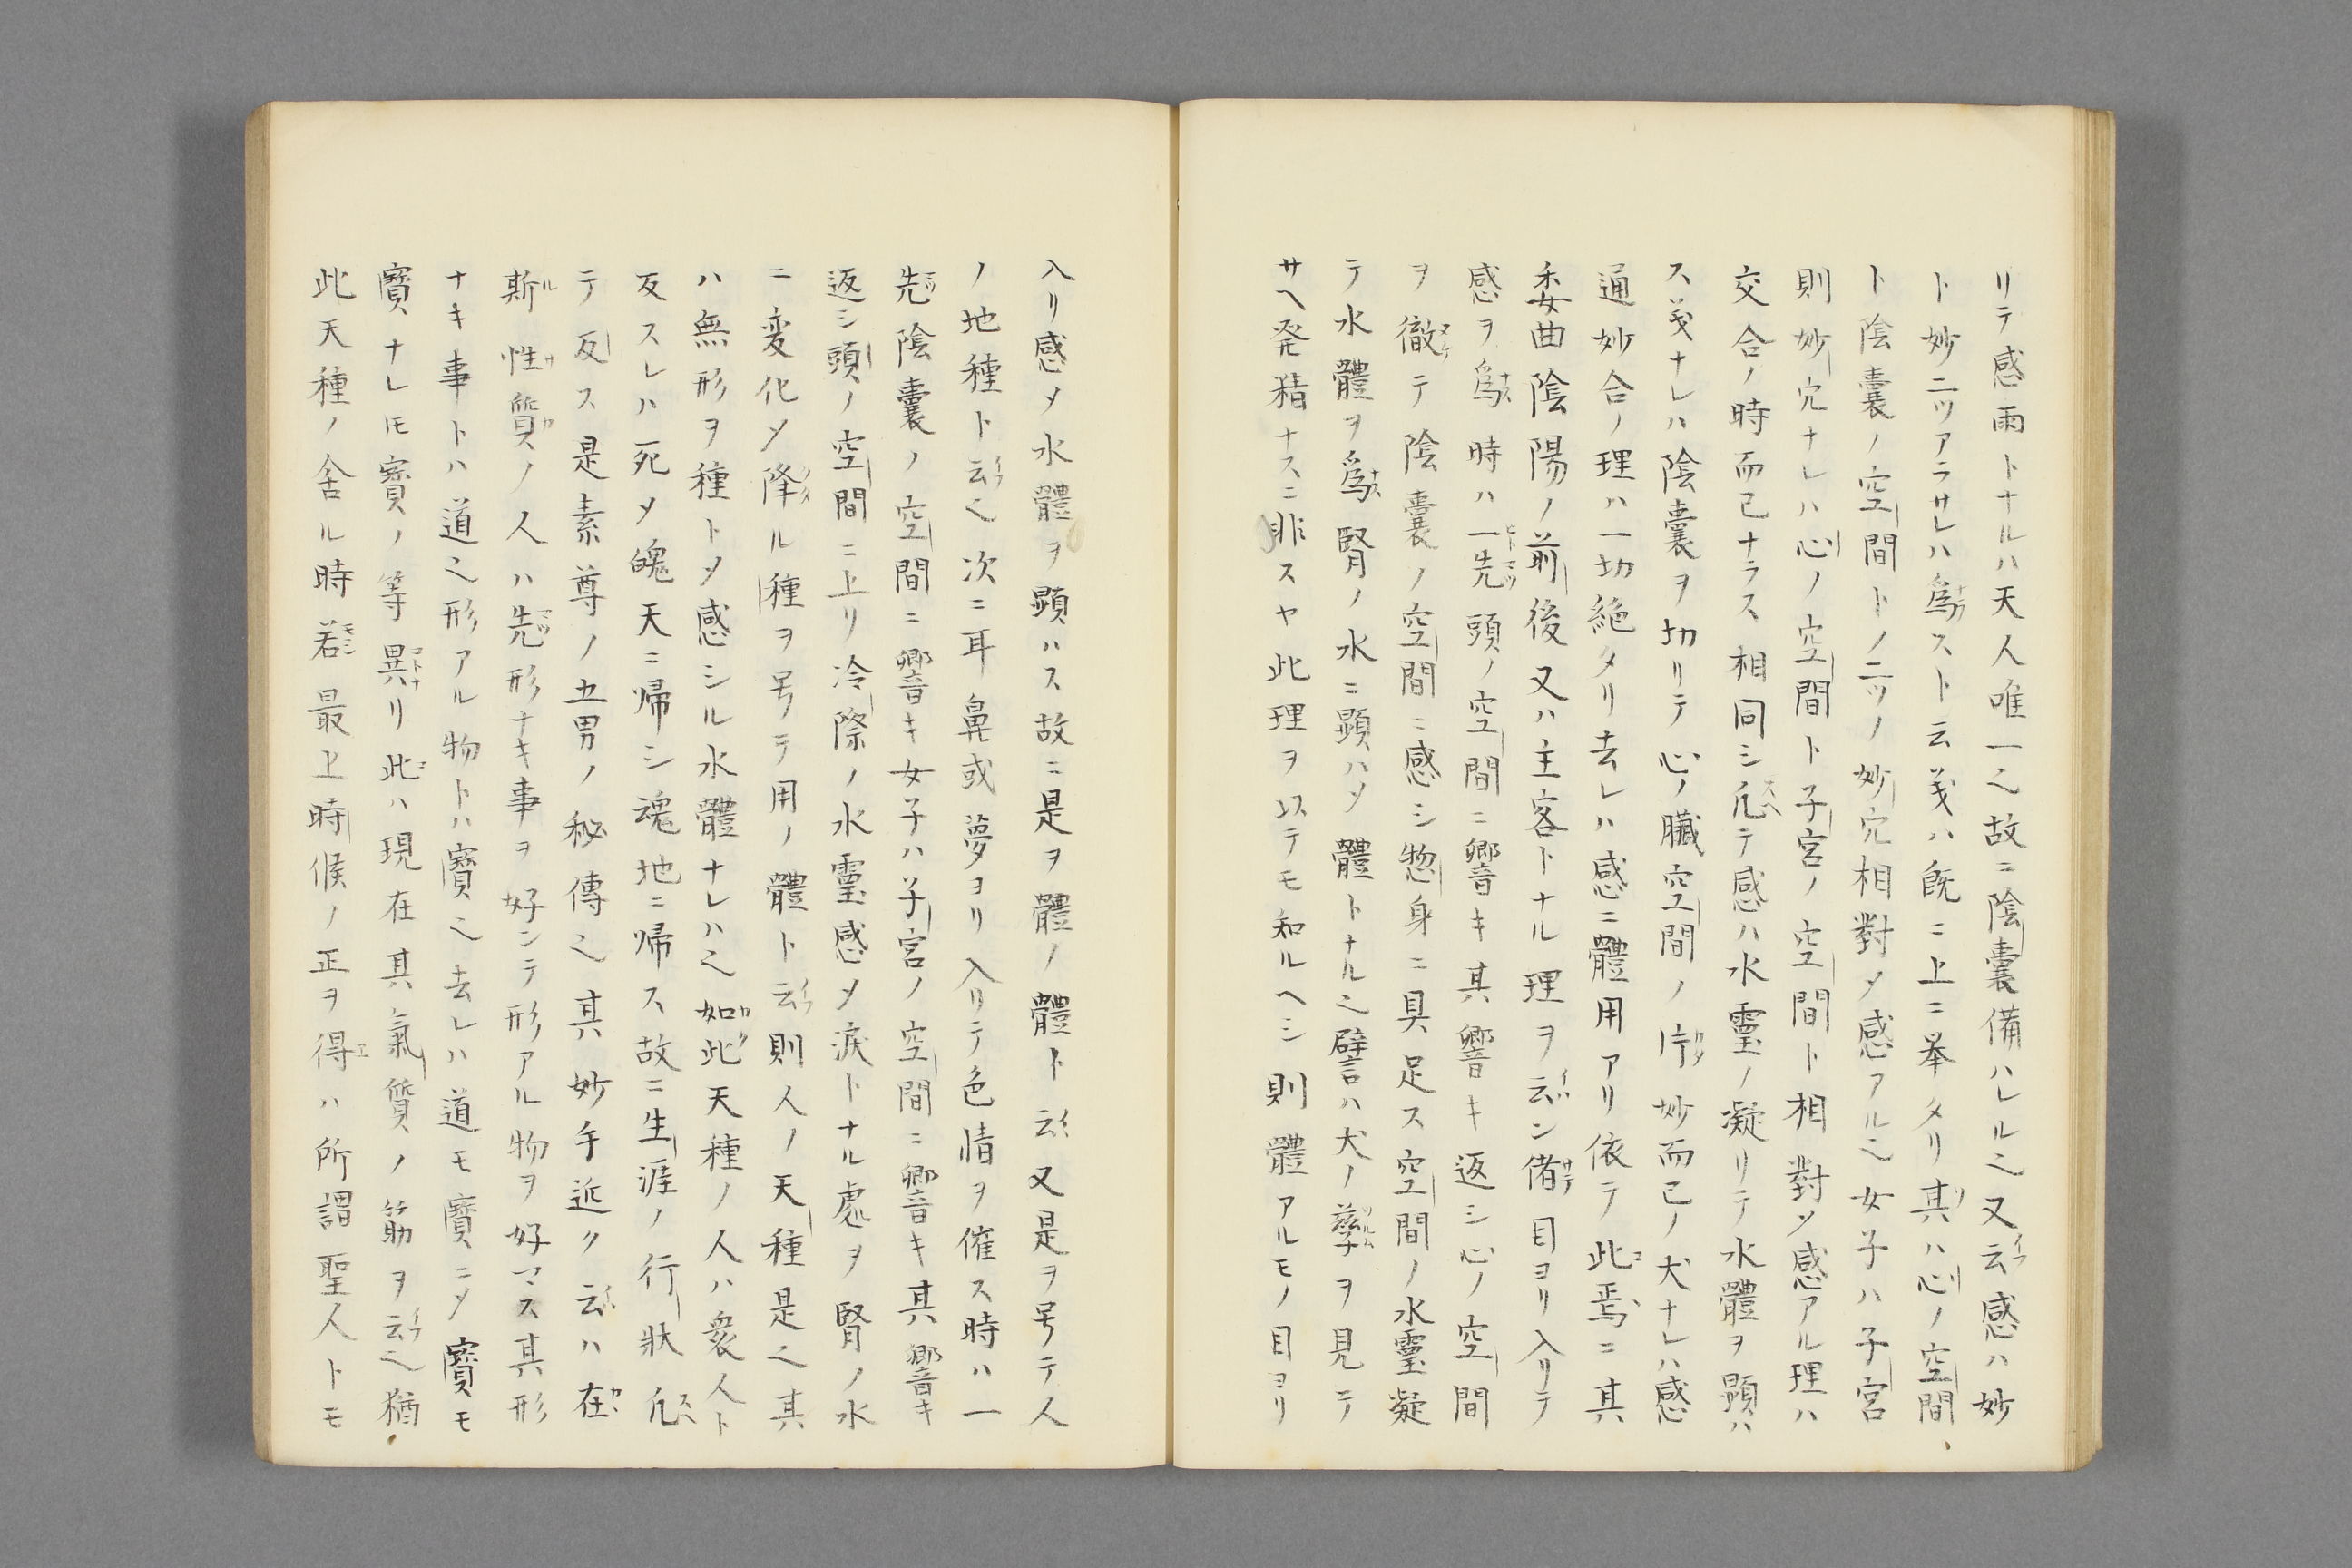 リテ感雨トナルハ天人唯一之故ニ陰嚢備ハレル之又云感ハ妙
ト妙ニツアラサレハ為ストト云義ハ既ニ上ニ挙タリ其ハ心ノ空間
ト陰嚢ノ空間トノ二ツノ妙穴相對メ感アル之女子ハ子宮
則妙穴ナレハ心ノ空間ト子宮ノ空間ト相對メ感アル理ハ
交合ノ時而已ナラス相同シ凢テ感ハ水霊ノ凝リテ水體ヲ顕ハ
ス義ナレハ陰嚢ヲ切リテ心ノ臓空間ノ片妙而已ノ犬ナレハ感
通妙合ノ理ハ一切絶タリ去レハ感ニ體用アリ依テ此焉ニ其
委曲陰陽ノ前後又ハ主客トナル理ヲ云ン偖目ヨリ入リテ
感ヲ為時ハ一先頭ノ空間ニ響キ其響キ返シ心ノ空間
ヲ徹テ陰嚢ノ空間ニ感シ惣身ニ具足ス空間ノ水霊凝
テ水體ヲ為腎ノ水ニ顕ハメ體トナル之譬ハ犬ノ孳ヲ見テ
サヘ発精ナスニ非スヤ此理ヲ以テモ知ルヘシ則體アルモノ目ヨリ
入リ感メ水體ヲ顕ハス故ニ是ヲ體ノ體ト云又是ヲ号テ人
ノ地種ト云之次ニ耳鼻或夢ヨリ入リテ色情ヲ催ス時ハ一
先陰嚢ノ空間ニ響キ女子ハ子宮ノ空間ニ響キ其響キ
返シ頭ノ空間ニ上リ冷際ノ水霊感メ涙トナル處ヲ腎ノ水
ニ変化メ降ル種ヲ号テ用ノ體ト云則人ノ天種是之其
ハ無形ヲ種トメ感シル水體ナレハ之如此天種ノ人ハ衆人ト
反スレハ死メ魄天ニ帰シ魂地ニ帰ス故ニ生涯ノ行状凢
テ反ス是素尊ノ五男ノ秘傳之其妙手近ク云ハ在
斯性質ノ人ハ先形ナキ事ヲ好ンテ形アル物ヲ好マス其形
ナキ事トハ道之形アル物トハ寳之去レハ道モ寳ニメ寳モ
寳ナレ𪜈寳ノ等異リ此ハ現在其氣質ノ筋ヲ云之猶
此天種ノ舎ル時若最上時候ノ正ヲ得ハ所謂聖人トモ